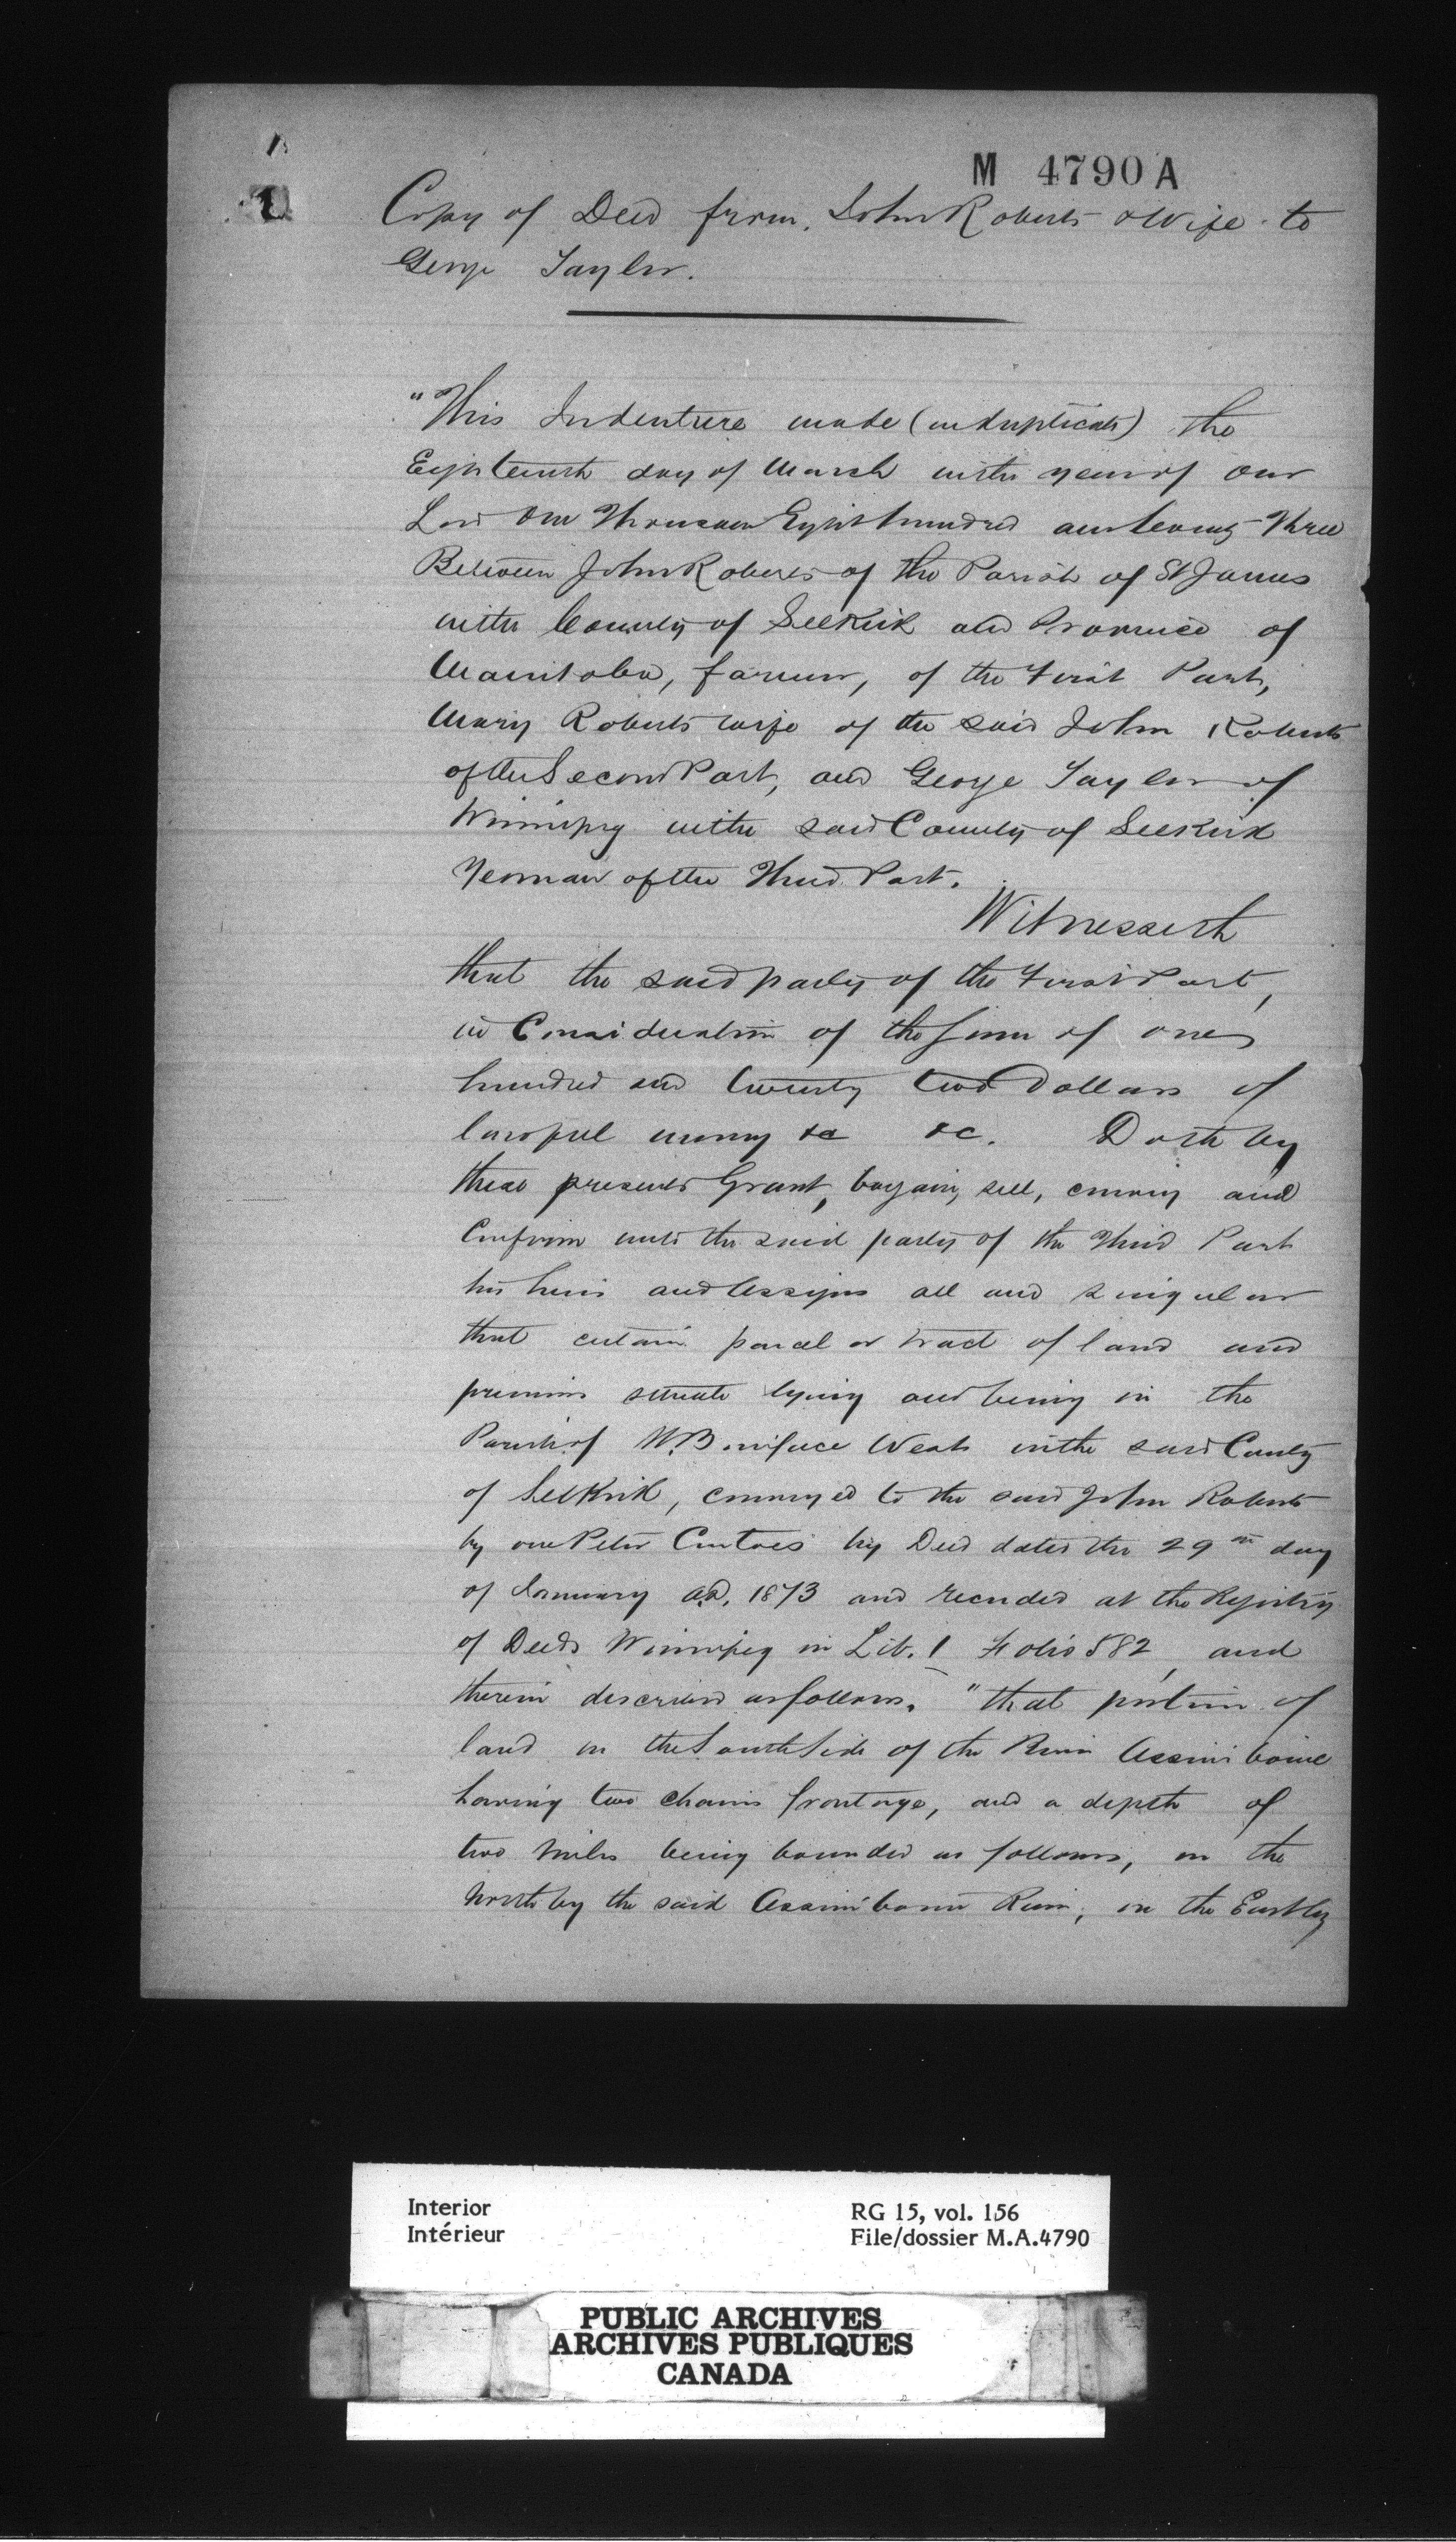 M 4790 A
Copy of Deed from John Roberts & Wife to
George Taylor.
"This Indenture made (in duplicate) the
Eighteenth day of March in the year of our
Lord One Thousand Eight hundred and seventy Three
Between John Roberts of the Parish of St James
in the County of Selkirk and Province of
Manitoba, farmer, of the First Part,
Mary Roberts wife of the said John Roberts
of the Second Part, and George Taylor of
Winnipeg in the said County of Selkirk
Yeoman of the Third Part.
Witnesseth
that the said party of the First Part,
in Consideration of the sum of one
hundred and twenty two Dollars of
lawful money &c &c. Doth by
these presents Grant, bargain, sell, convey and
Confirm unto the said party of the Third Part
his heirs and Assigns all and singular
that certain parcel or tract of land and
premises situate lying and being in the
Parish of St. Boniface West in the said County
of Selkirk, conveyed to the said John Roberts
by one Peter by Deed dated the 29th day
of January A.D. 1873 and recorded at the Registry
of Deeds Winnipeg in Lib. 1 Folio 582, and
therein described as follows. "that portion of
land on the South Side of the River Assiniboine
having two chains frontage, and a depth of
two miles being bounded as follows, on the
North by the said Assiniboine River, on the East by
Interior
Intérieur
RG 15, vol. 156
File/dossier M.A.4790
PUBLIC ARCHIVES
ARCHIVES PUBLIQUES
CANADA